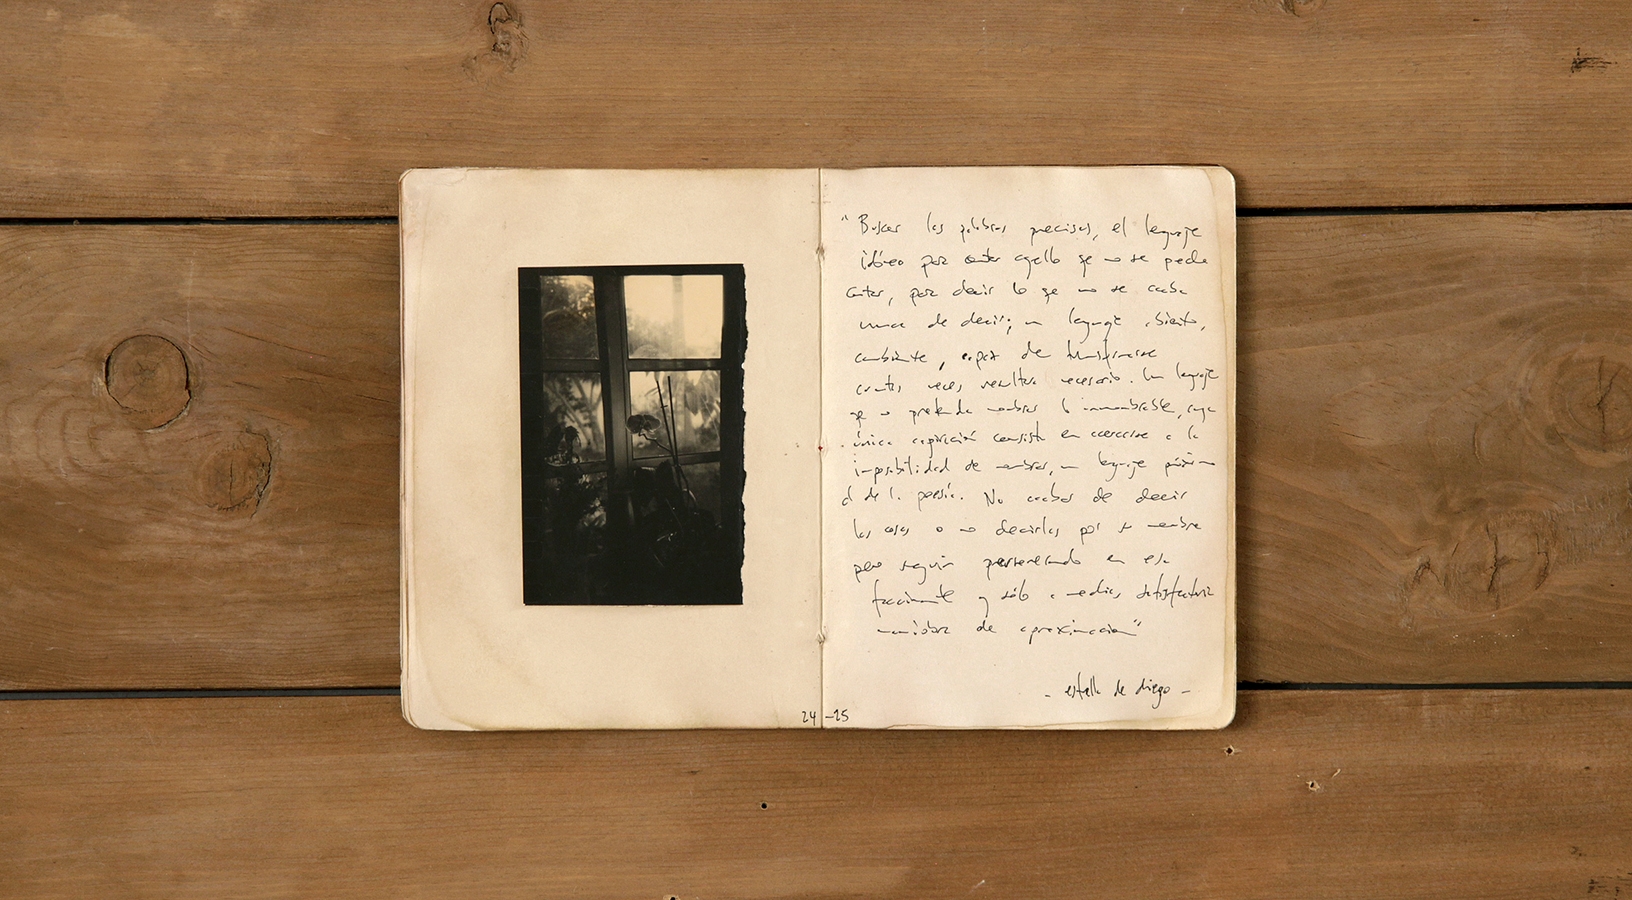 "Buscar las palabras precisas, el lenguaje
idóneo para contar aquello que no se puede
contar, para decir lo que no se acaba
nunca de decir; un lenguaje abierto,
cambiante, capaz de transformarse
cuantas veces resultase necesario. Un lenguaje
que no pretenda nombrar lo innombrable, cuya
única aspiración consista en acercarse a la
imposibilidad de nombrar, un lenguaje próximo
al de la poesía. No acabar de decir
las cosas o no decirlas por su nombre
pero seguir perseverando en esa
fascinante y sólo a medias satisfactoria
maniobra de aproximación"
- estrella de diego -
24-25